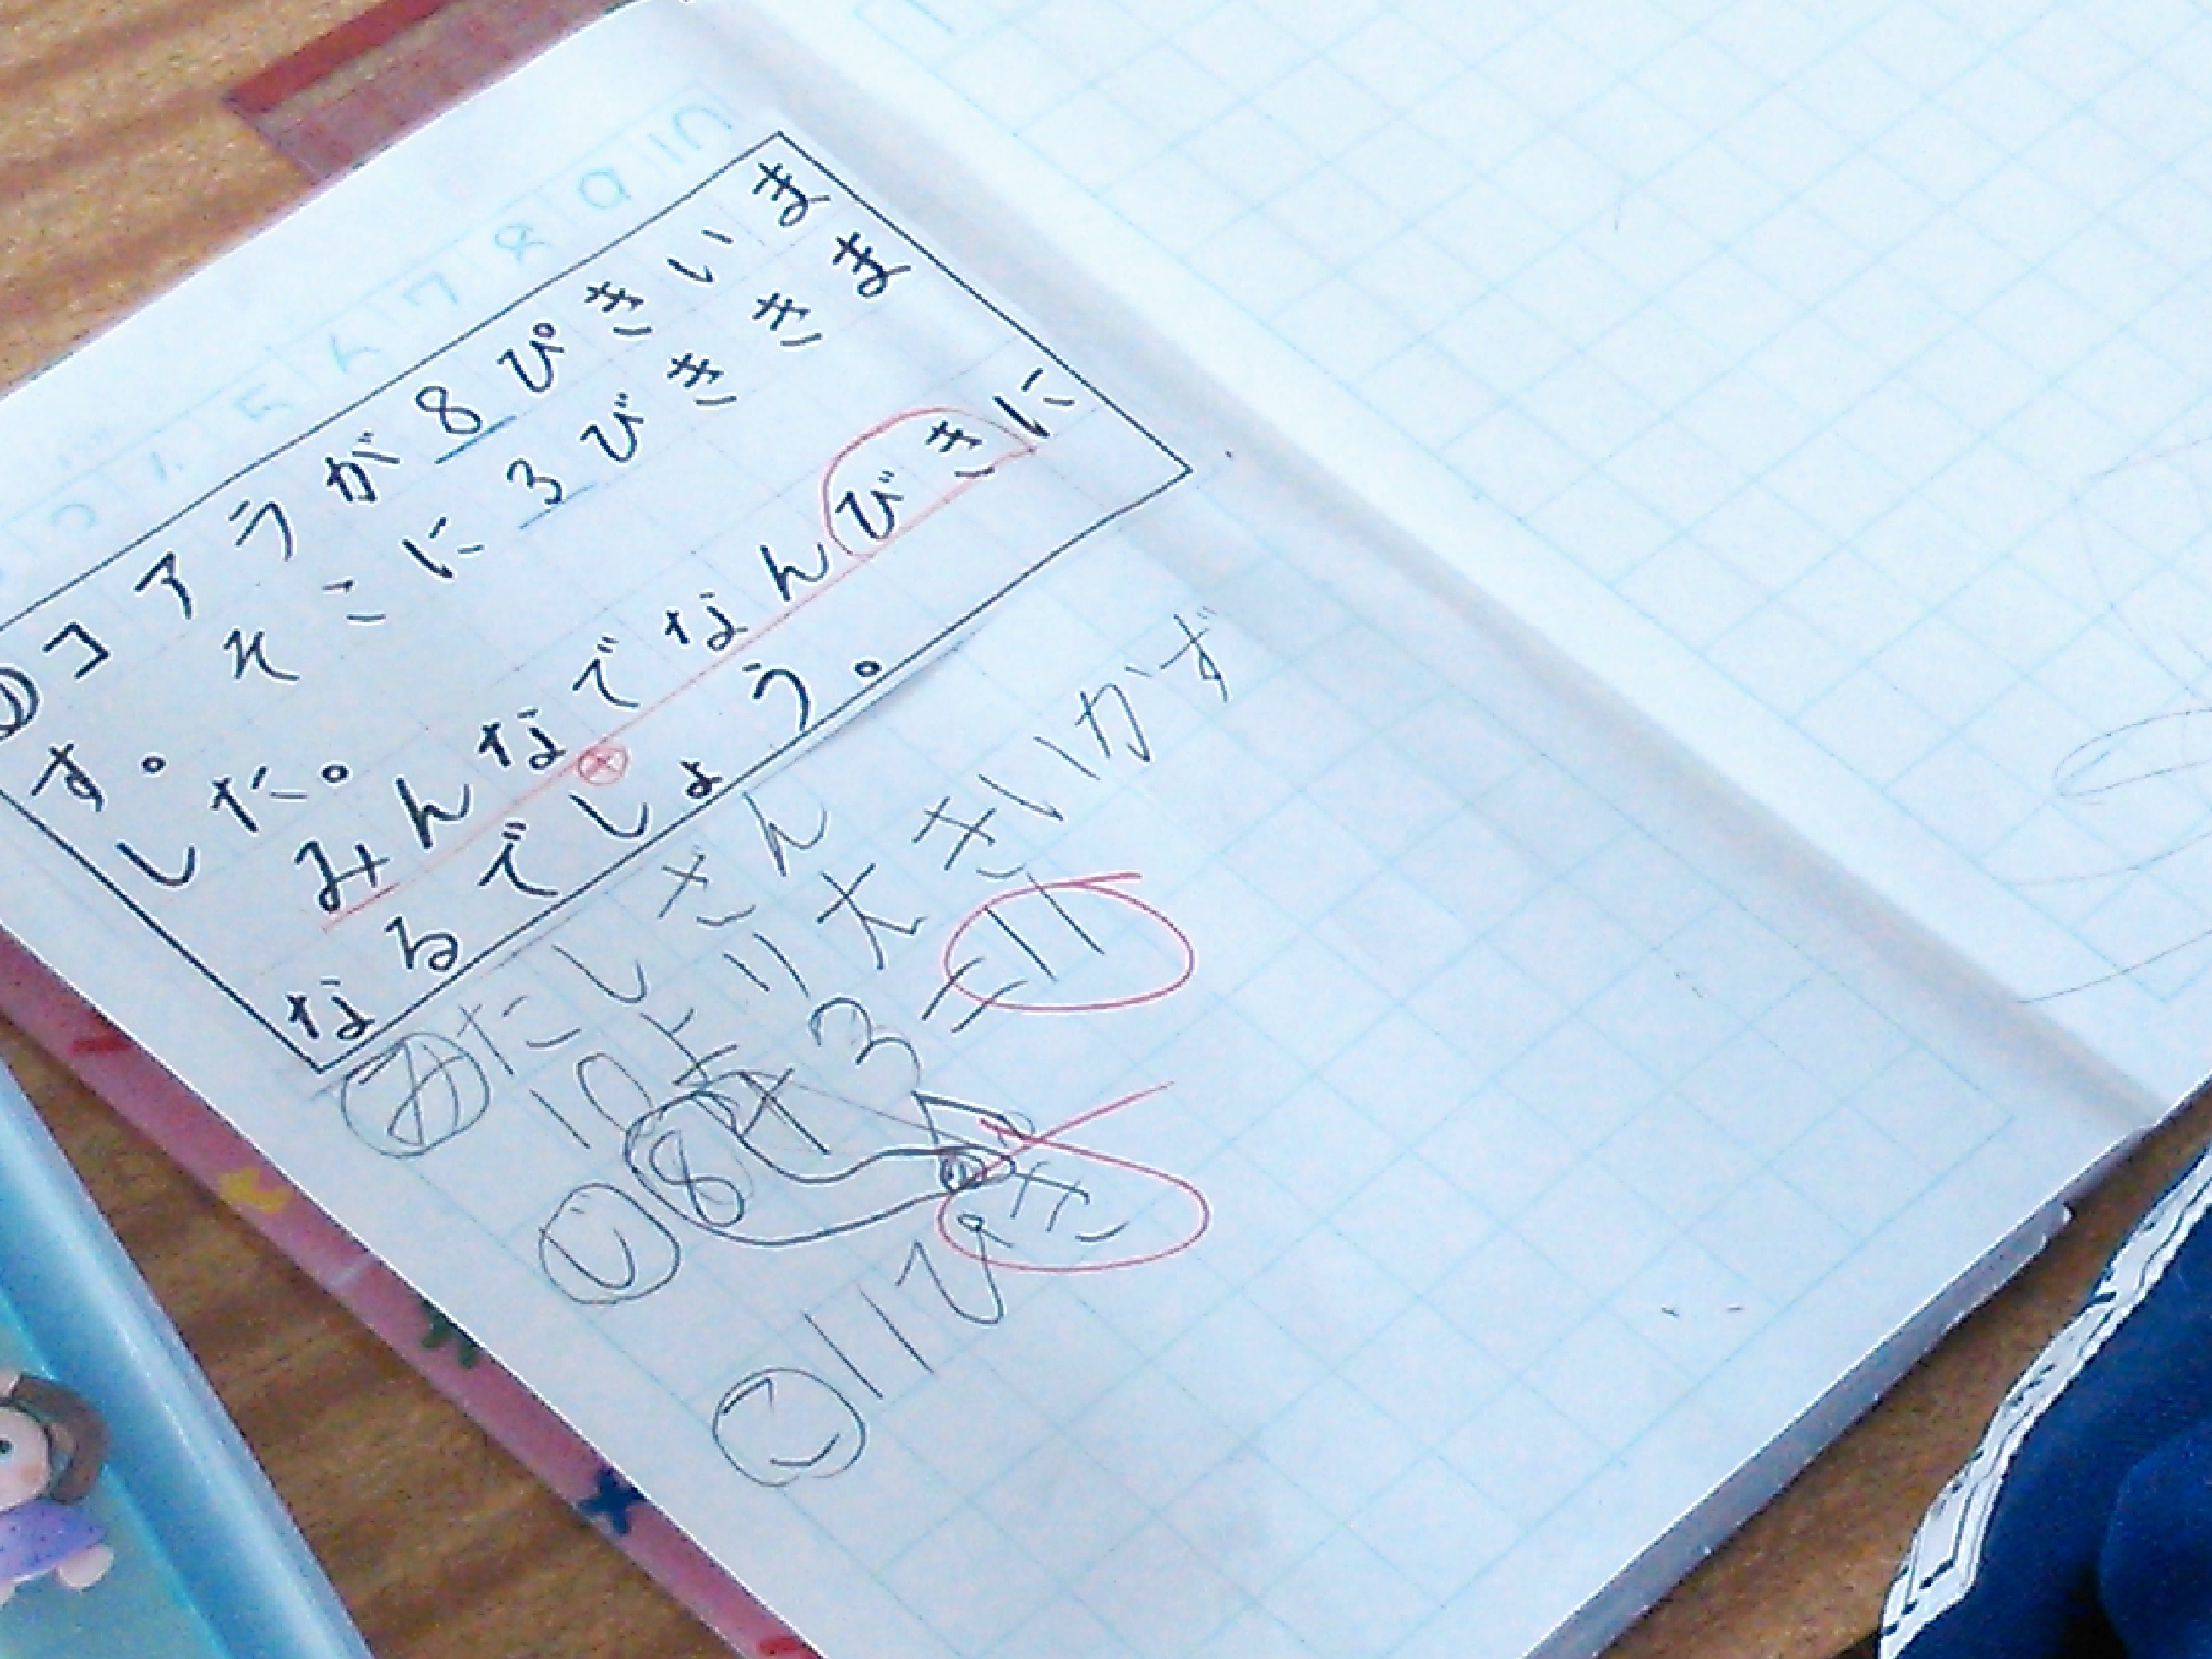 コアラが8ぴきいま
す。そこに3びききま
した。
みんなでなんびきに
なるでしょう。
み たしざん
10より大きいかず
じ 8+3=11
こ 11ぴき